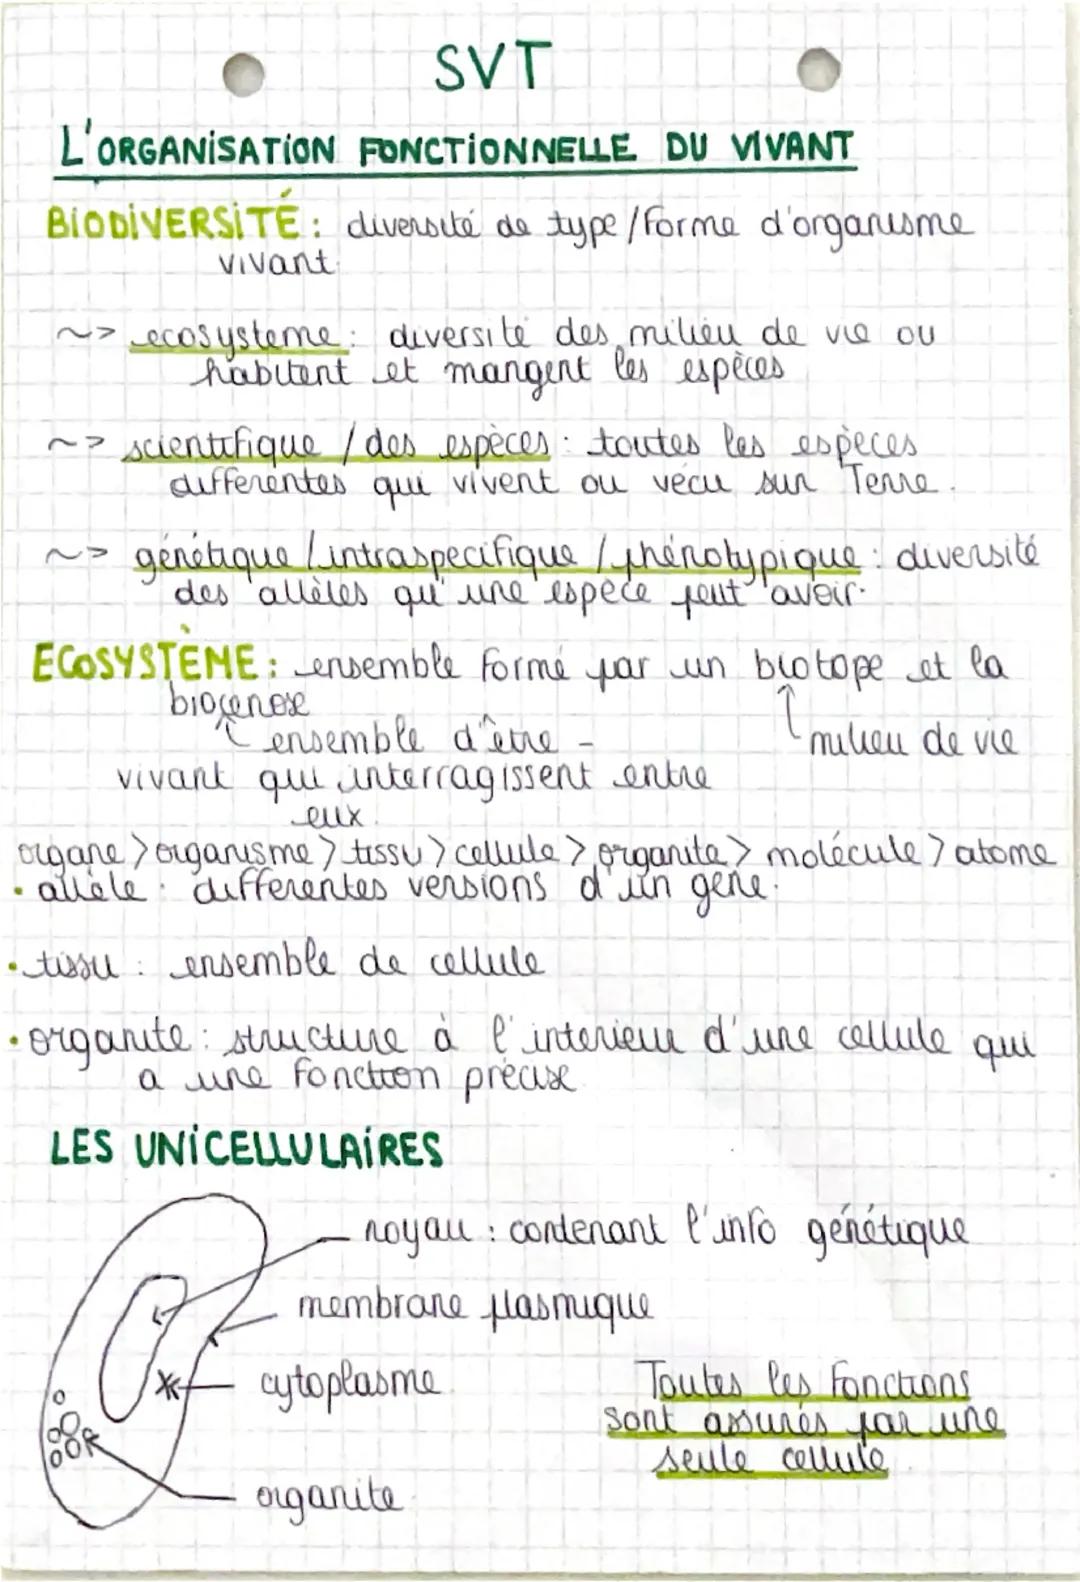 SVT
L'ORGANISATION FONCTIONNELLE DU VIVANT
BIODIVERSITÉ : diversité de type / forme d'organisme
vivant
~> ecosysteme : diversité des milieu de vie ou
habitent et mangent les espèces
~> scientifique / des espèces : toutes les espèces
differentes qui vivent ou vécu sur Terre.
~> génétique / intraspecifique / phénotypique : diversité
des allèles qu'une espece peut avoir.
ECOSYSTÈME : ensemble formé par un biotope et la
biocenose
ensemble d'être - milieu de vie
vivant qui interragissent entre
eux.
organe > organisme > tissu > cellule > organite > molécule > atome
• allèle : differentes versions d'un gène.
• tissu : ensemble de cellule
• organite : structure à l'interieur d'une cellule qui
a une fonction précise
LES UNICELLULAIRES
noyau : contenant l'info génétique
membrane plasmique
cytoplasme
Toutes les fonctions
sont assurés par une
seule cellule
organite